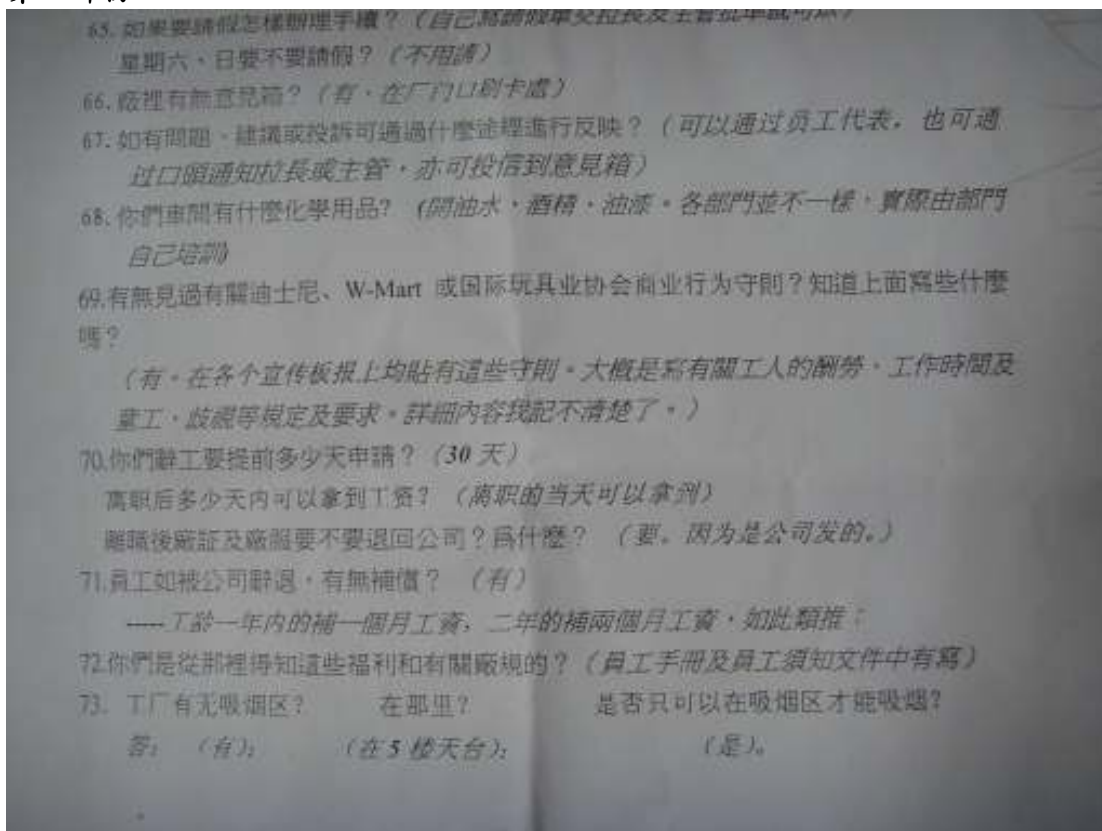 65. 如果要請假怎樣辦理手續？（自己寫請假單交拉長及主管批準就可以）
星期六、日要不要請假？（不用請）
66. 廠裡有無意見箱？（有，在厂门口刷卡處）
67. 如有問題、建議或投訴可通過什麼途徑進行反映？（可以通过员工代表，也可通
过口頭通知拉長或主管，亦可投信到意見箱）
68. 你們車間有什麼化學用品？（開油水，酒精，油漆。各部門並不一樣，實際由部門
自己培訓）
69.有無見過有關迪士尼、W-Mart 或国际玩具业协会商业行为守則？知道上面寫些什麼
嗎？
（有。在各个宣传板报上均貼有這些守則。大概是寫有關工人的酬勞、工作時間及
童工，歧視等規定及要求。詳細內容我記不清楚了。）
70.你們辭工要提前多少天申請？（30 天）
离职后多少天内可以拿到工资？（离职的当天可以拿到）
離職後廠証及廠服要不要退回公司？爲什麼？（要。因为是公司发的。）
71.員工如被公司辭退，有無補償？（有）
-----工龄一年内的補一個月工資，二年的補兩個月工資，如此類推；
72.你們是從那裡得知這些福利和有關廠規的？（員工手冊及員工須知文件中有寫）
73. 工厂有无吸烟区？ 在那里？ 是否只可以在吸烟区才能吸烟？
答：（有）； （在 5 楼天台）； （是）。